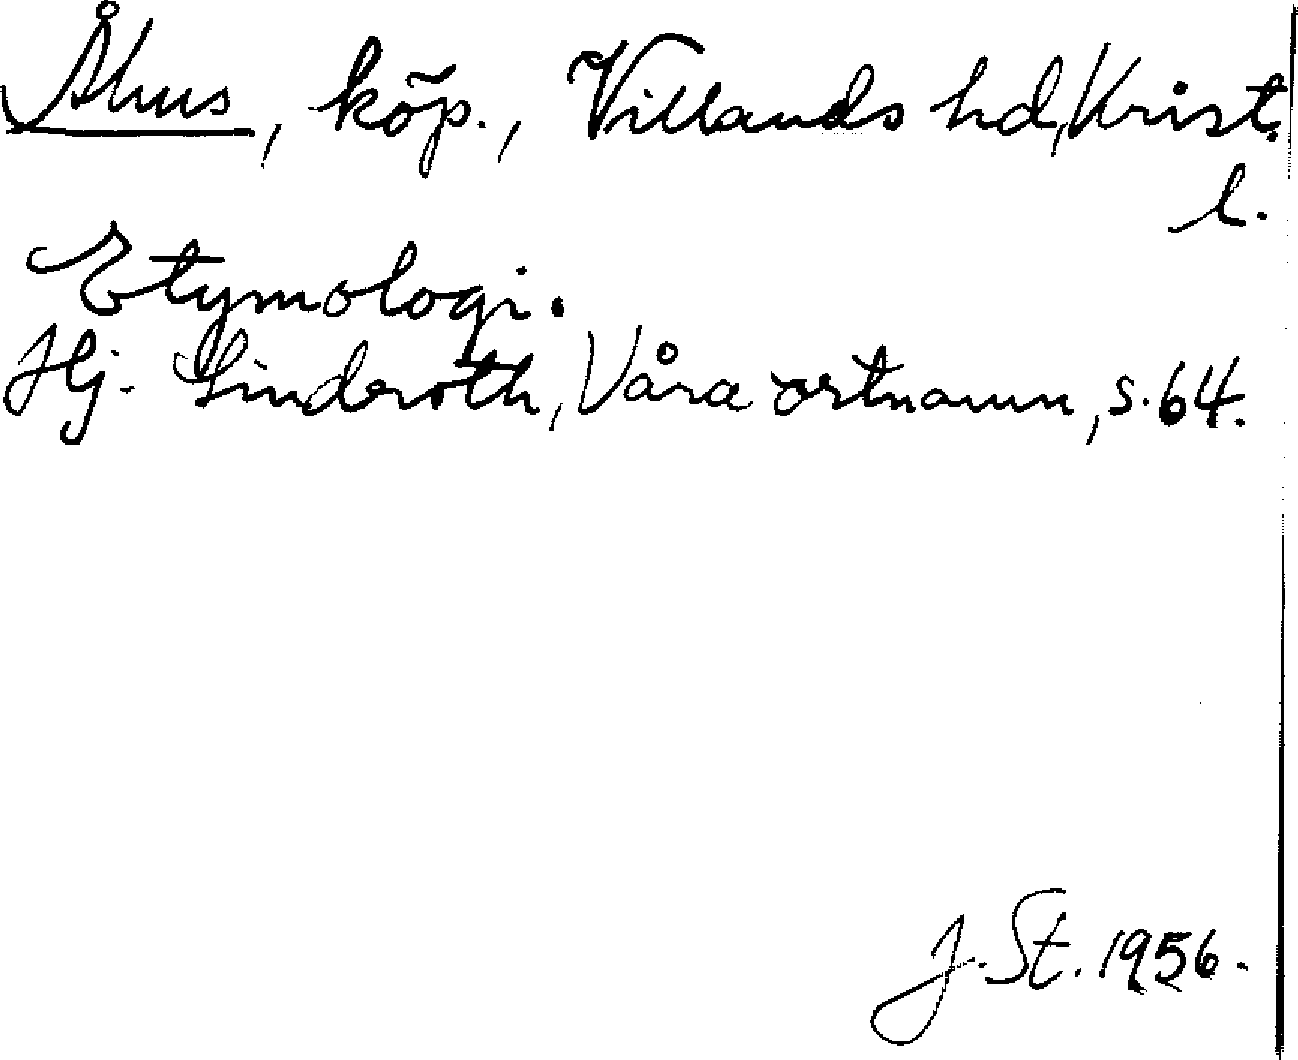 Åhus, köp., Villands hd, Krist.
l.
Etymologi.
Hj. Linderoth, Våra ortnamn, s. 64.
J. St. 1956.